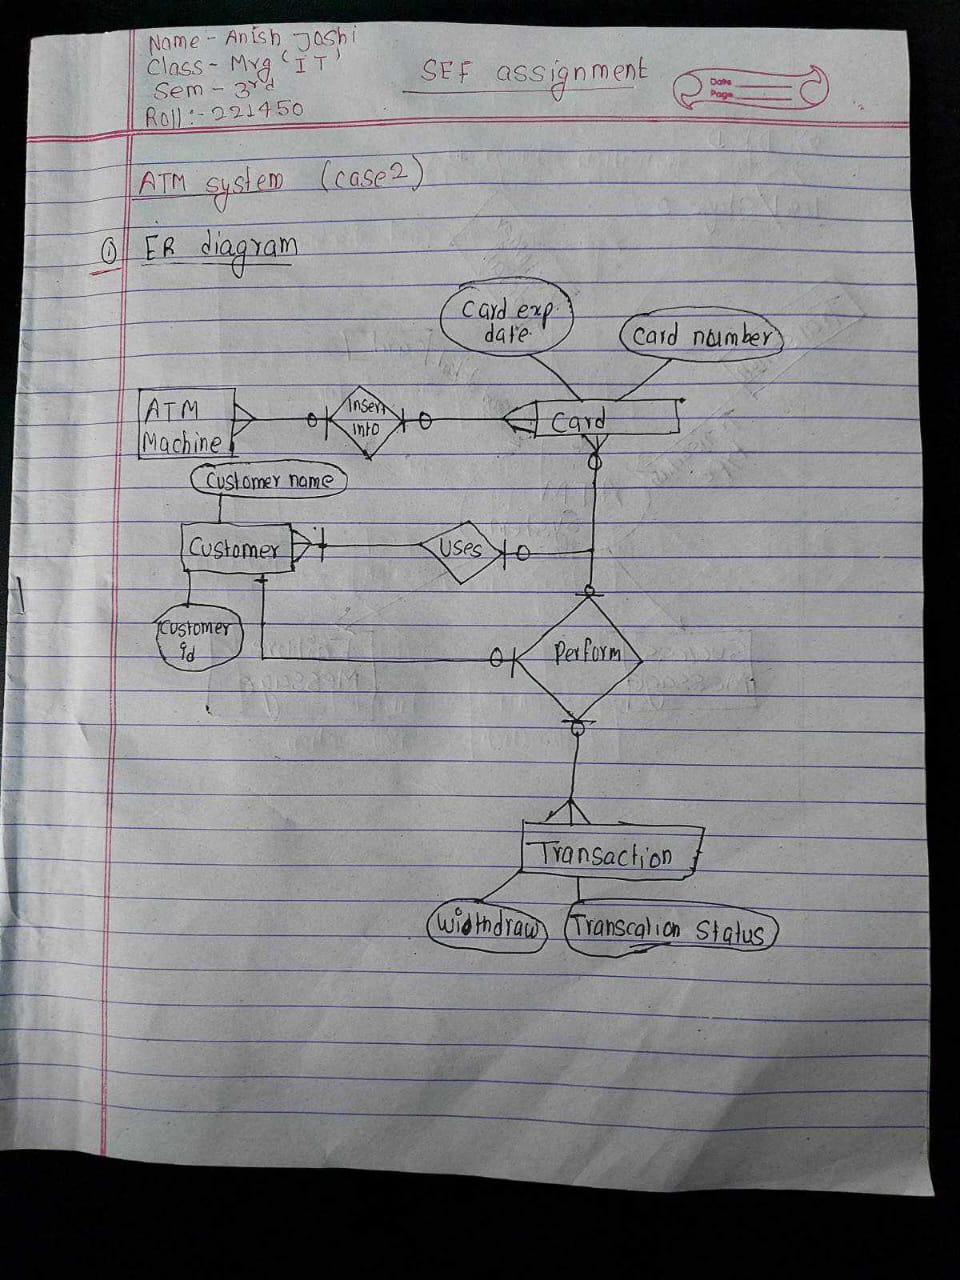 Name - Anish Joshi
Class - Mrg 'IT'
Sem - 3rd
Roll :- 221450
SEF assignment
Date
Page
ATM system (case2)
① ER diagram
Card exp.
date.
Card number
ATM
Machine
Insert
into
Card
Customer name
Customer
Uses
Customer
id
Perform
Transaction
Widthdraw
Transcation Status